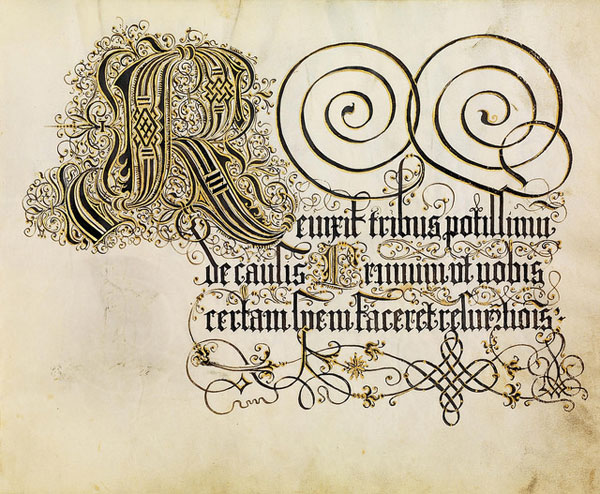 Revixit tribus potissimu
de causis Primum ut nobis
certam spem faceret resurrctiois: